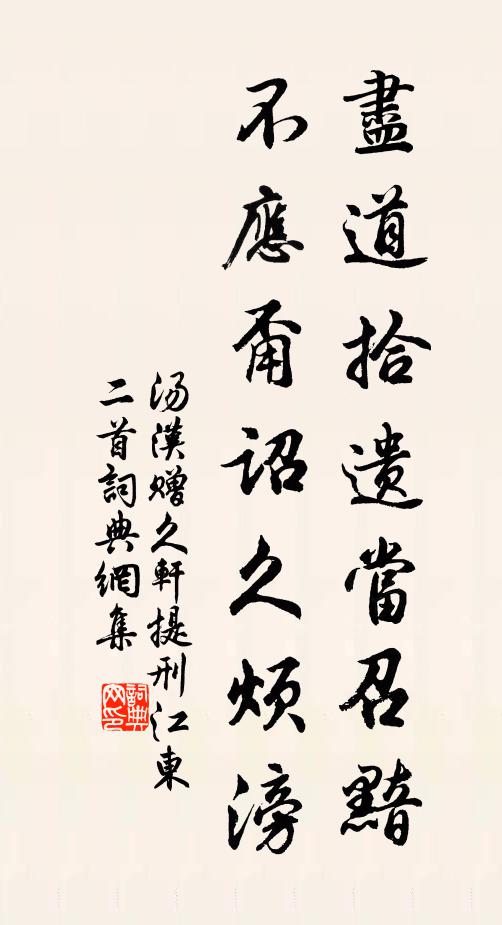 盡道拾遺當召黯
不應甭詔久煩滂
湯漢贈久軒提刑江東
二首詞典網集
詞典网印